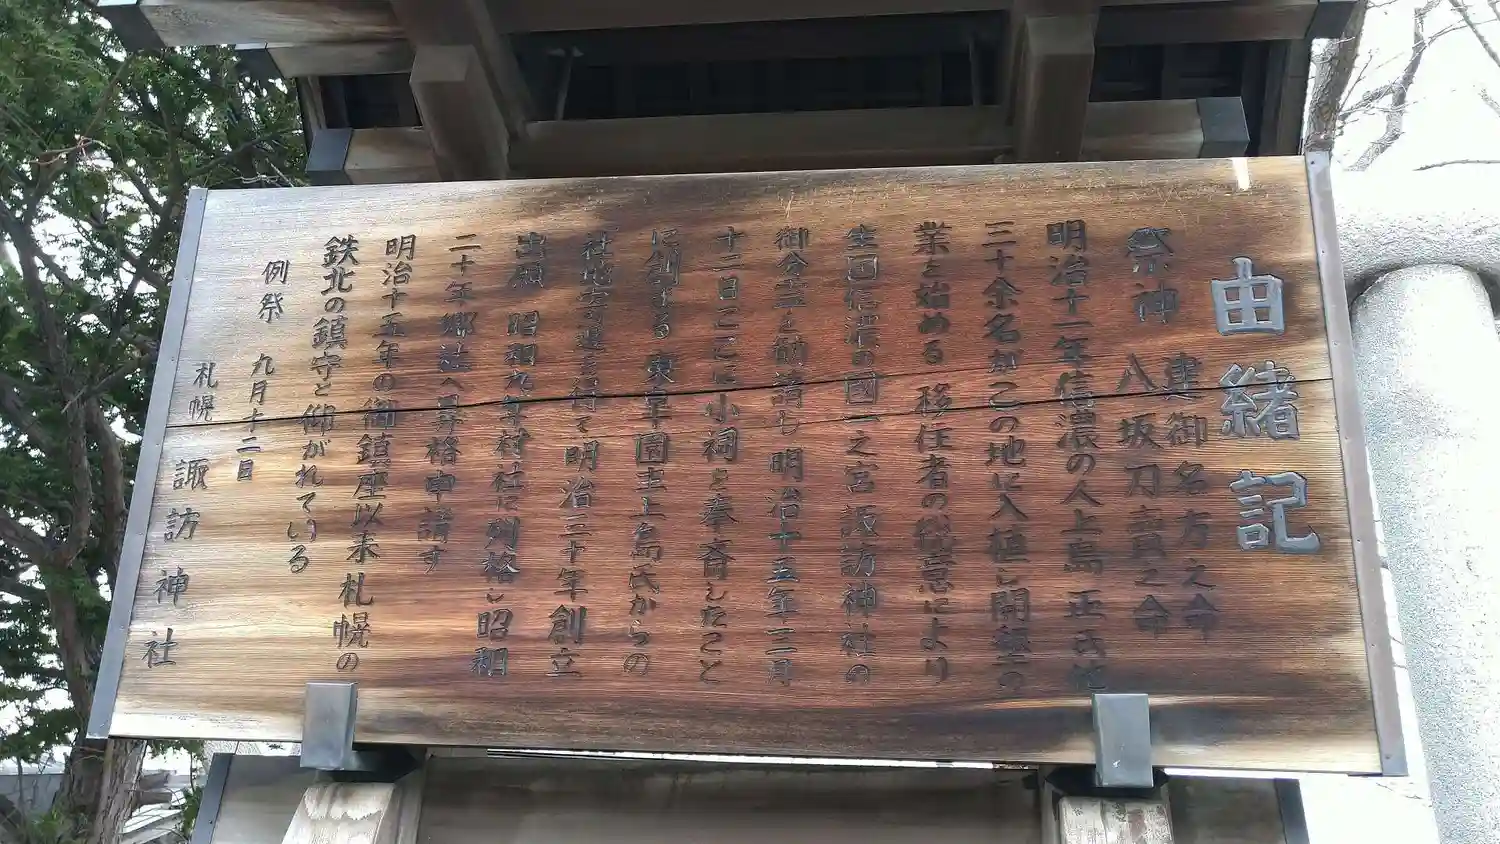 由緒記
祭神 建御名方之命
八坂刀賣之命
明治十一年信濃の人上島 正氏他
三十余名がこの地に入植し開墾の
業を始める 移住者の総意により
生国信濃の國一之宮諏訪神社の
御分霊を勧請し明治十五年三月
十二日ここに小祠を奉斎したこと
に創まる 東皐園主上島氏からの
社地寄進を得て明治三十年創立
出願 昭和九年村社に列格し昭和
二十年郷社へ昇格申請す
明治十五年の御鎮座以来札幌の
鉄北の鎮守と仰がれている
例祭 九月十二日
札幌 諏訪神社